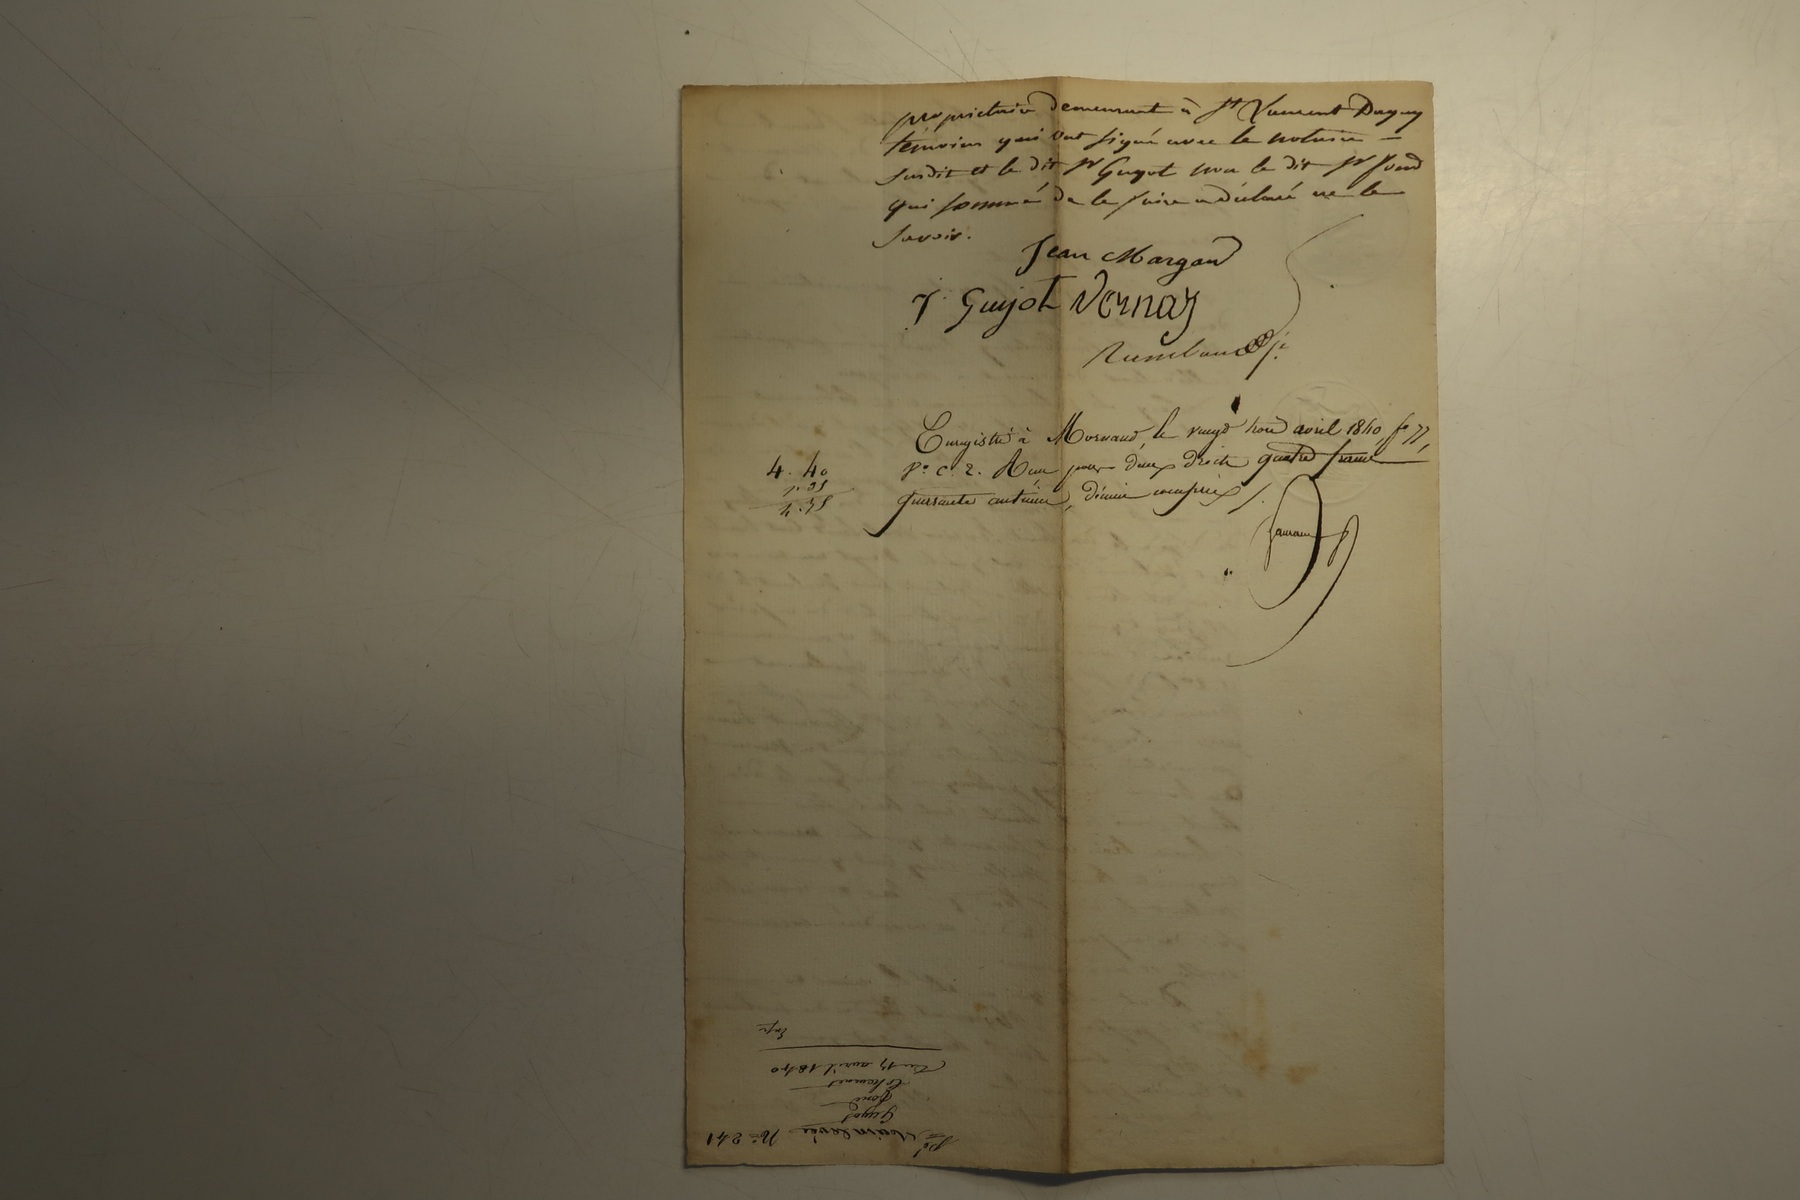 propriétaire demeurant à St Laurent Dagny
témoins qui ont signé avec le notaire —
susdit et le dit Sr Guyot non le dit Sr Fond
qui sommé de le faire a déclaré ne le
savoir.
Jean Margand
Guyot Vernay
Enregistré à Mornand, le vingt trois avril 1840, fo 77,
4. 40
Vo c. 2. Reçu pour deux droits quatre francs
quarante centimes, décime compris
No 241
Mainlevée
Guyot
Fond
Du 17 avril 1840
Exp.